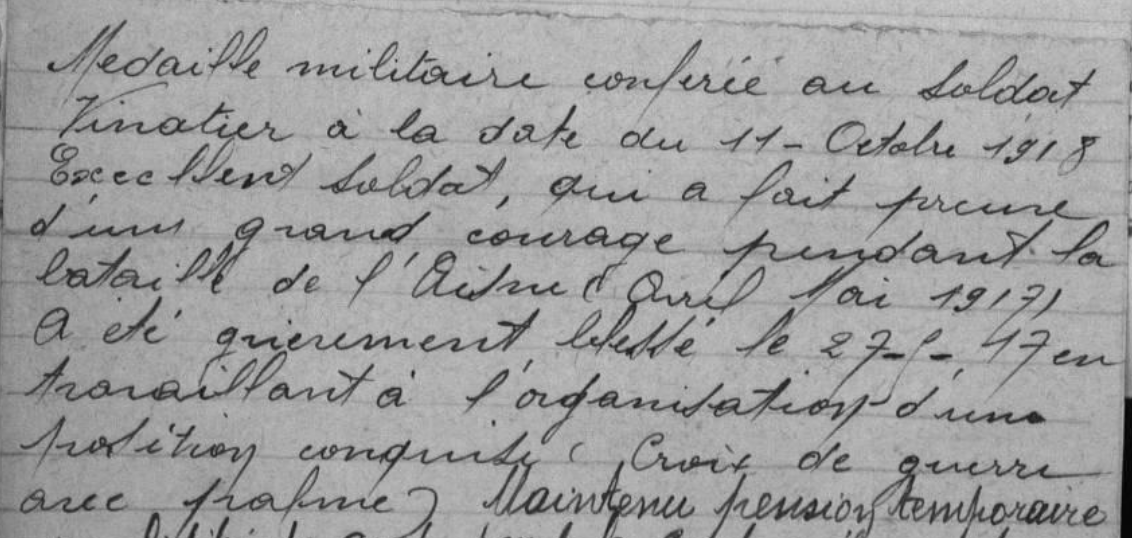 Medaille militaire conferée au soldat
Vinatier à la date du 11 - Octobre 1918
Excellent soldat, qui a fait preuve
d'un grand courage pendant la
bataille de l'Aisne (Avril Mai 1917)
A été grièvement blessé le 27-5-17 en
travaillant à l'organisation d'une
position conquise (Croix de guerre
avec palme) Maintenu pension temporaire